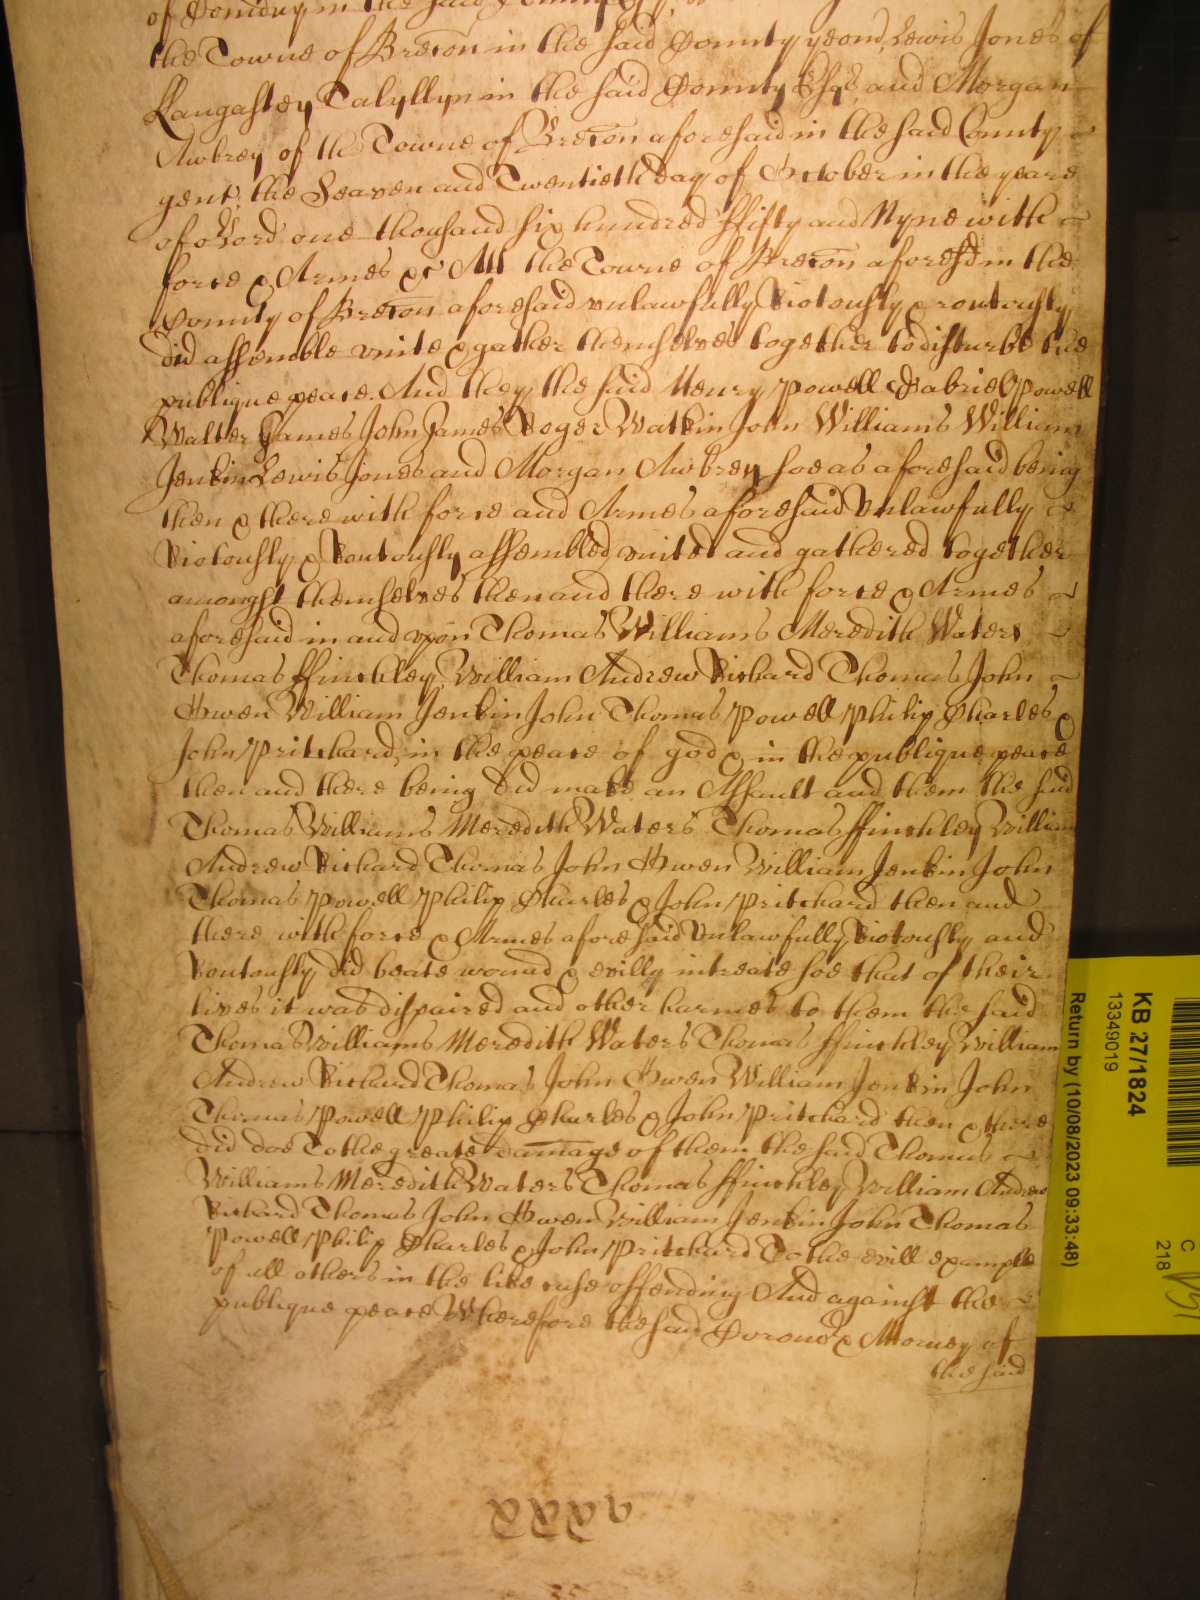 in the said
the Towne of Brecon in the said County yeom Lewis Jones of
Llangastey Talyllyn in the said County Esqr and Morgan
Awbrey of the Towne of Brecon aforesaid in the said County
gent the Seaven and Twentieth day of October in the yeare
of or Lord one thousand six hundred ffifty and Nyne with
force & Armes &c Att the Towne of Brecon aforesd in the
County of Brecon aforesaid vnlawfully Riotously & routously
did assemble vnite & gather themselves together to disturbe the
publique peace And they the said Henry Powell Gabriel Powell
Walter Games John James Roger Watkin John Williams William
Jenkin Lewis Jones and Morgan Awbrey soe as aforesaid being
then & there with force and Armes aforesaid Vnlawfully
Riotously & Routously assembled vnited and gathered together
amongst themselves then and there with force & Armes
aforesaid in and vpon Thomas Williams Meredith Waters
Thomas ffinchley William Andrew Richard Thomas John
Owen William Jenkin John Thomas Powell Philip Charles &
John Pritchard in the peace of god & in the publique peace
then and there being did make an Assault and them the said
Thomas Williams Meredith Waters Thomas ffinchley William
Andrew Richard Thomas John Owen William Jenkin John
Thomas Powell Philip Charles & John Pritchard then and
there with force & Armes aforesaid Vnlawfully Riotously and
Routously did beate wound & evilly intreate soe that of their
lives it was dispaired and other harmes to them the said
Thomas Williams Meredith Waters Thomas ffinchley William
Andrew Richard Thomas John Owen William Jenkin John
Thomas Powell Philip Charles & John Pritchard then & there
did doe To the greate damage of them the said Thomas
Williams Meredith Waters Thomas ffinchley William Andrew
Richard Thomas John Owen William Jenkin John Thomas
Powell Philip Charles & John Pritchard To the evill example
of all others in the like case offending And against the
publique peace Wherefore the said Coroner & Attorney of
the said
KB 27/1824
13349019
Return by (10/08/2023 09:33:48)
C
218